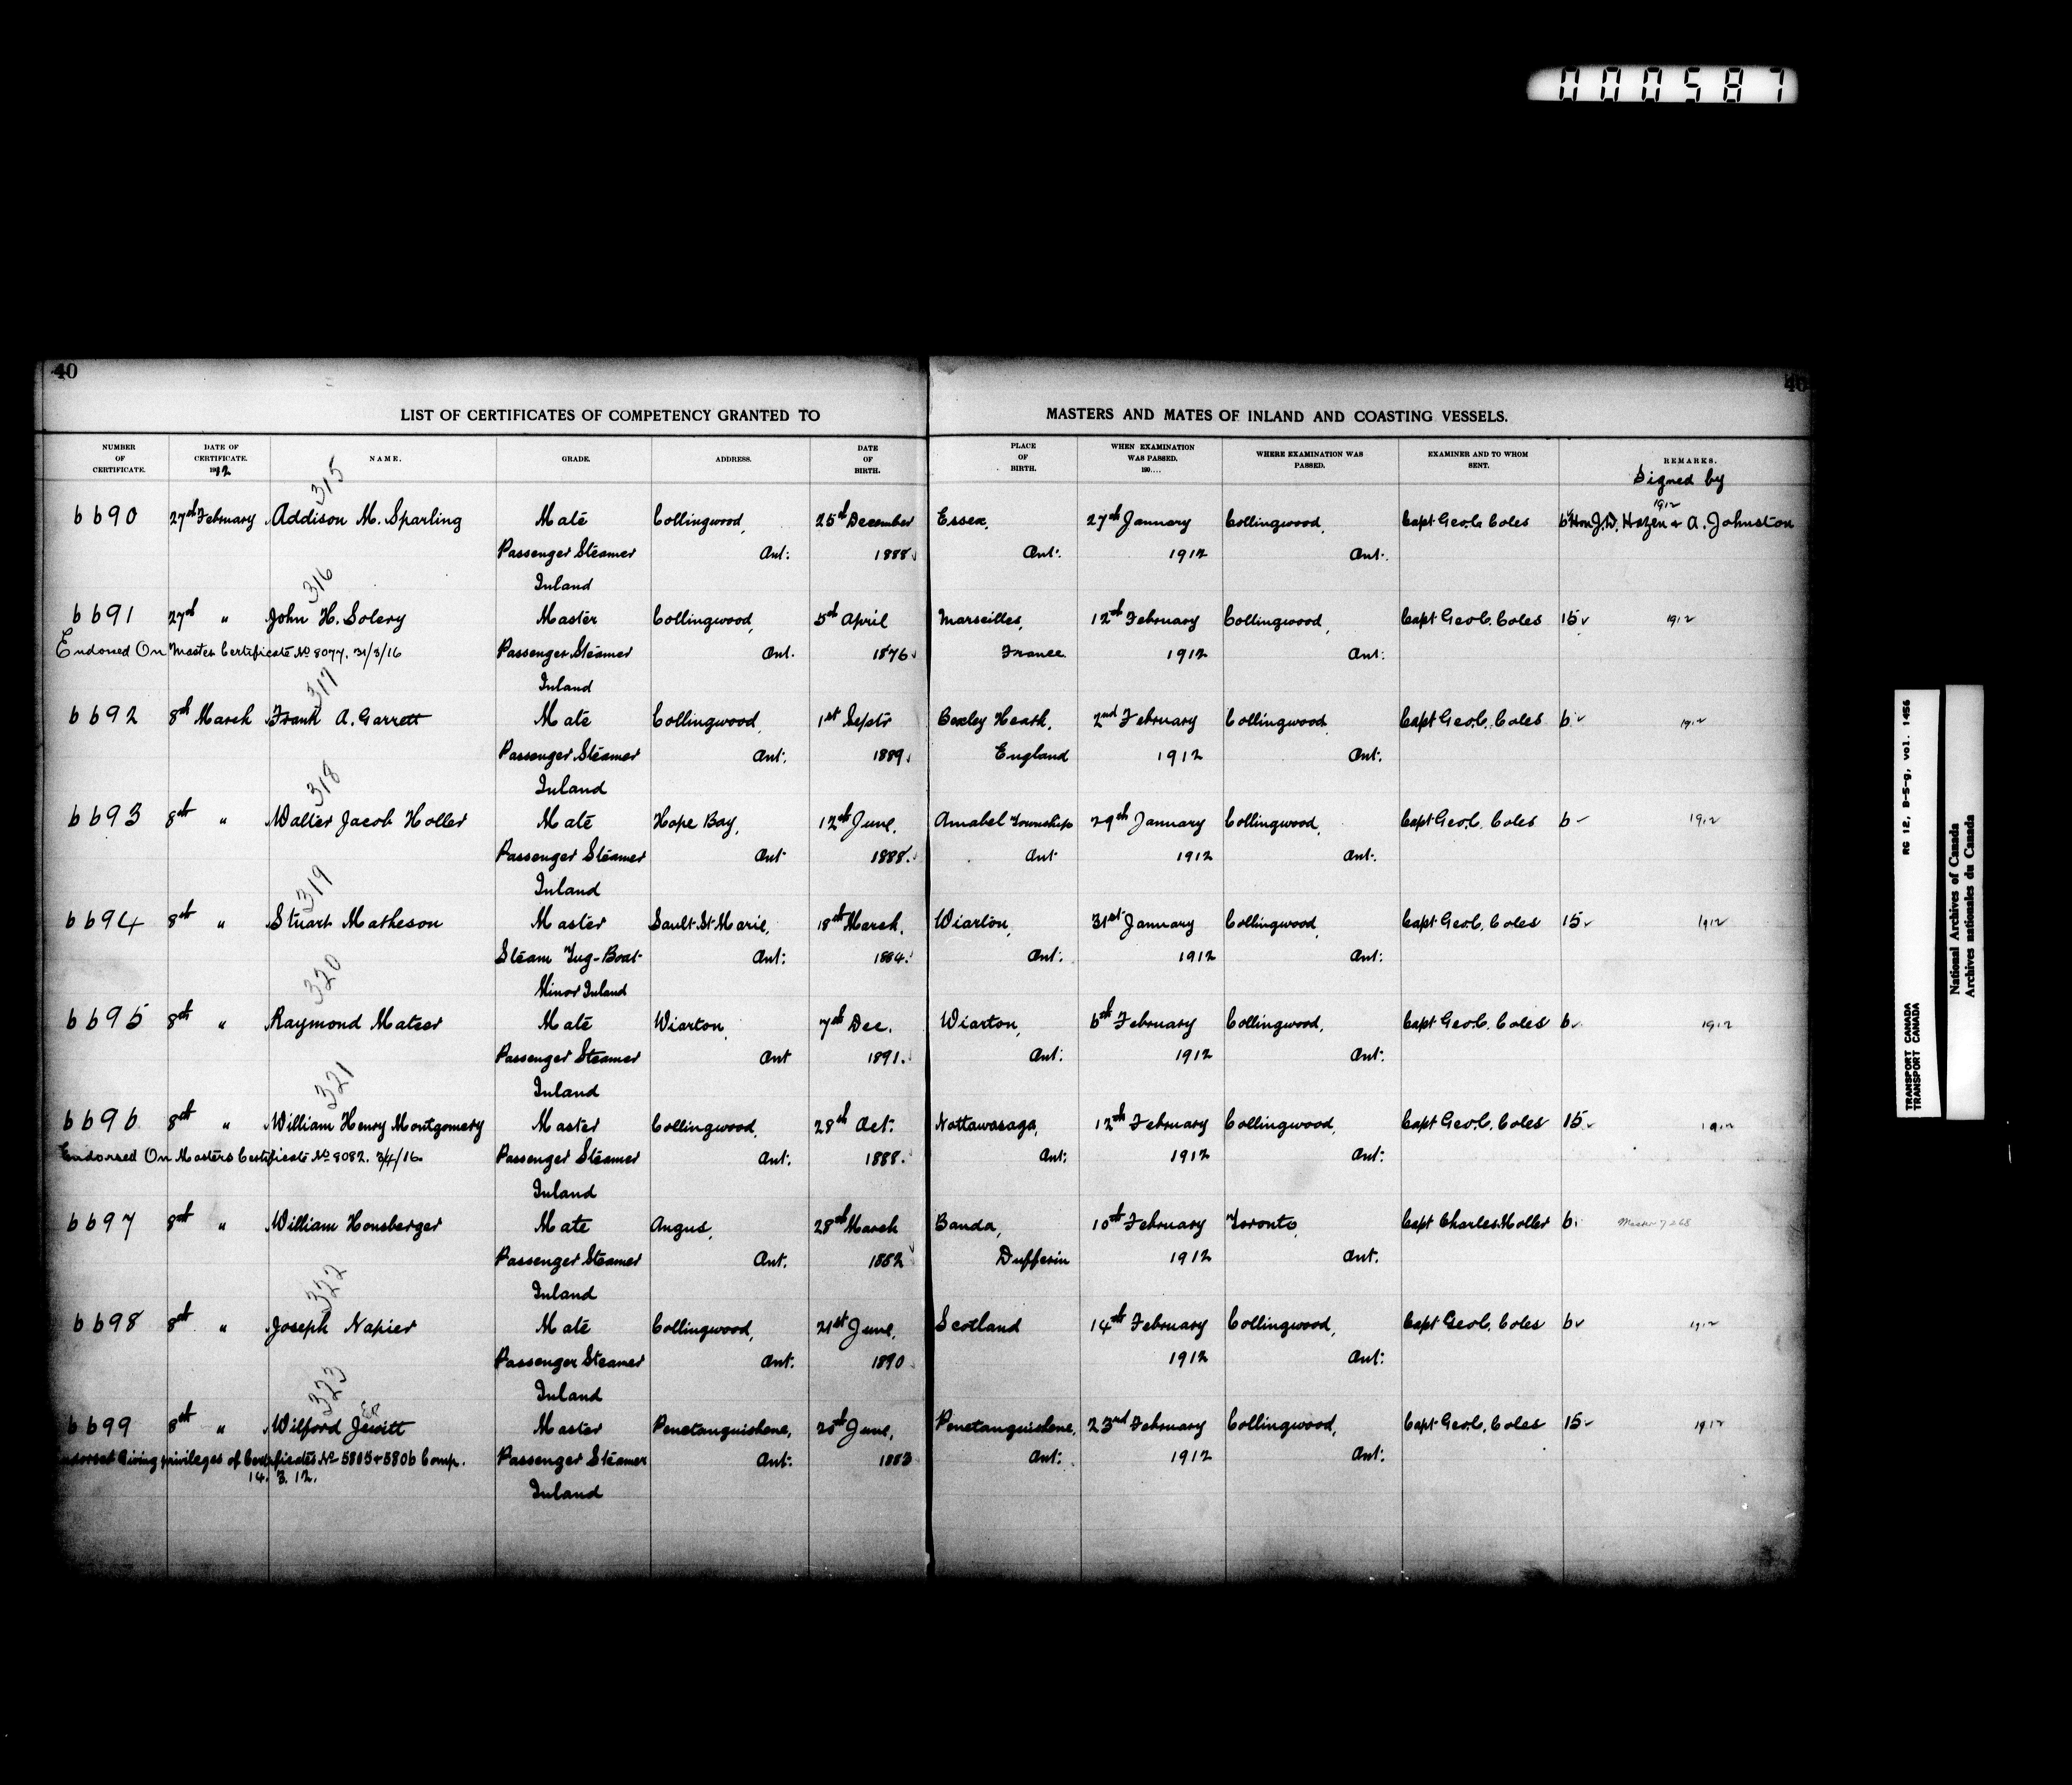 000587
40
40
LIST OF CERTIFICATES OF COMPETENCY GRANTED TO MASTERS AND MATES OF INLAND AND COASTING VESSELS.
NUMBER OF CERTIFICATE. DATE OF CERTIFICATE. 1912 NAME. GRADE. ADDRESS. DATE OF BIRTH. PLACE OF BIRTH. WHEN EXAMINATION WAS PASSED. 190.... WHERE EXAMINATION WAS PASSED. EXAMINER AND TO WHOM SENT. REMARKS.
Signed by
315
1912
6690 27th February Addison M. Sparling Mate Collingwood, 25th December Essex, 27th January Collingwood, Capt Geo. C. Coles 6 Hon J.D. Hazen & A. Johnston
Passenger Steamer Ont: 1888 Ont: 1912 Ont:
Inland
316
6691 27th " John H. Solery Master Collingwood, 5th April Marseilles, 12th February Collingwood, Capt Geo C. Coles 15 1912
Endorsed On Master Certificate No 8077. 31/3/16 Passenger Steamer Ont. 1876 France 1912 Ont:
Inland
317
6692 8th March Frank A. Garrett Mate Collingwood, 1st Septr Bexley Heath, 2nd February Collingwood Capt Geo. C. Coles 6 1912
Passenger Steamer Ont: 1889 England 1912 Ont:
Inland
318
6693 8th " Walter Jacob Holler Mate Hope Bay, 12th June, Amabel Township 29th January Collingwood, Capt Geo. C. Coles 6 1912
Passenger Steamer Ont 1888. Ont 1912 Ont:
Inland
319
6694 8th " Stuart Matheson Master Sault St Marie, 18th March, Wiarton, 31st January Collingwood, Capt Geo C. Coles 15 1912
Steam Tug-Boat Ont: 1884. Ont: 1912 Ont:
Minor Inland
320
6695 8th " Raymond Mateer Mate Wiarton, 7th Dec. Wiarton, 6th February Collingwood, Capt Geo C. Coles 6 1912
Passenger Steamer Ont 1891. Ont: 1912 Ont:
Inland
321
6696 8th " William Henry Montgomery Master Collingwood, 28th Oct: Nottawasaga, 12th February Collingwood, Capt Geo. C. Coles 15 1912
Endorsed On Masters Certificate No 8082. 3/4/16. Passenger Steamer Ont. 1888. Ont: 1912 Ont:
Inland
6697 8th " William Honsberger Mate Angus, 28th March Banda, 10th February Toronto, Capt Charles Moller 6 Master 7268
Passenger Steamer Ont. 1882 Dufferin 1912 Ont.
Inland
322
6698 8th " Joseph Napier Mate Collingwood, 21st June, Scotland 14th February Collingwood, Capt Geo C. Coles 6 1912
Passenger Steamer Ont. 1890 1912 Ont:
Inland
323
6699 8th " Wilford Jewitt Master Penetanguishene, 20th June, Penetanguishene, 23rd February Collingwood, Capt Geo. C. Coles 15 1912
Giving privileges of Certificates No 5805 & 5806 Comp. Passenger Steamer Ont: 1883 Ont: 1912 Ont:
14. 3. 12.
Inland
RG 12, B-5-g, vol. 1456
TRANSPORT CANADA
TRANSPORT CANADA
National Archives of Canada
Archives nationales du Canada